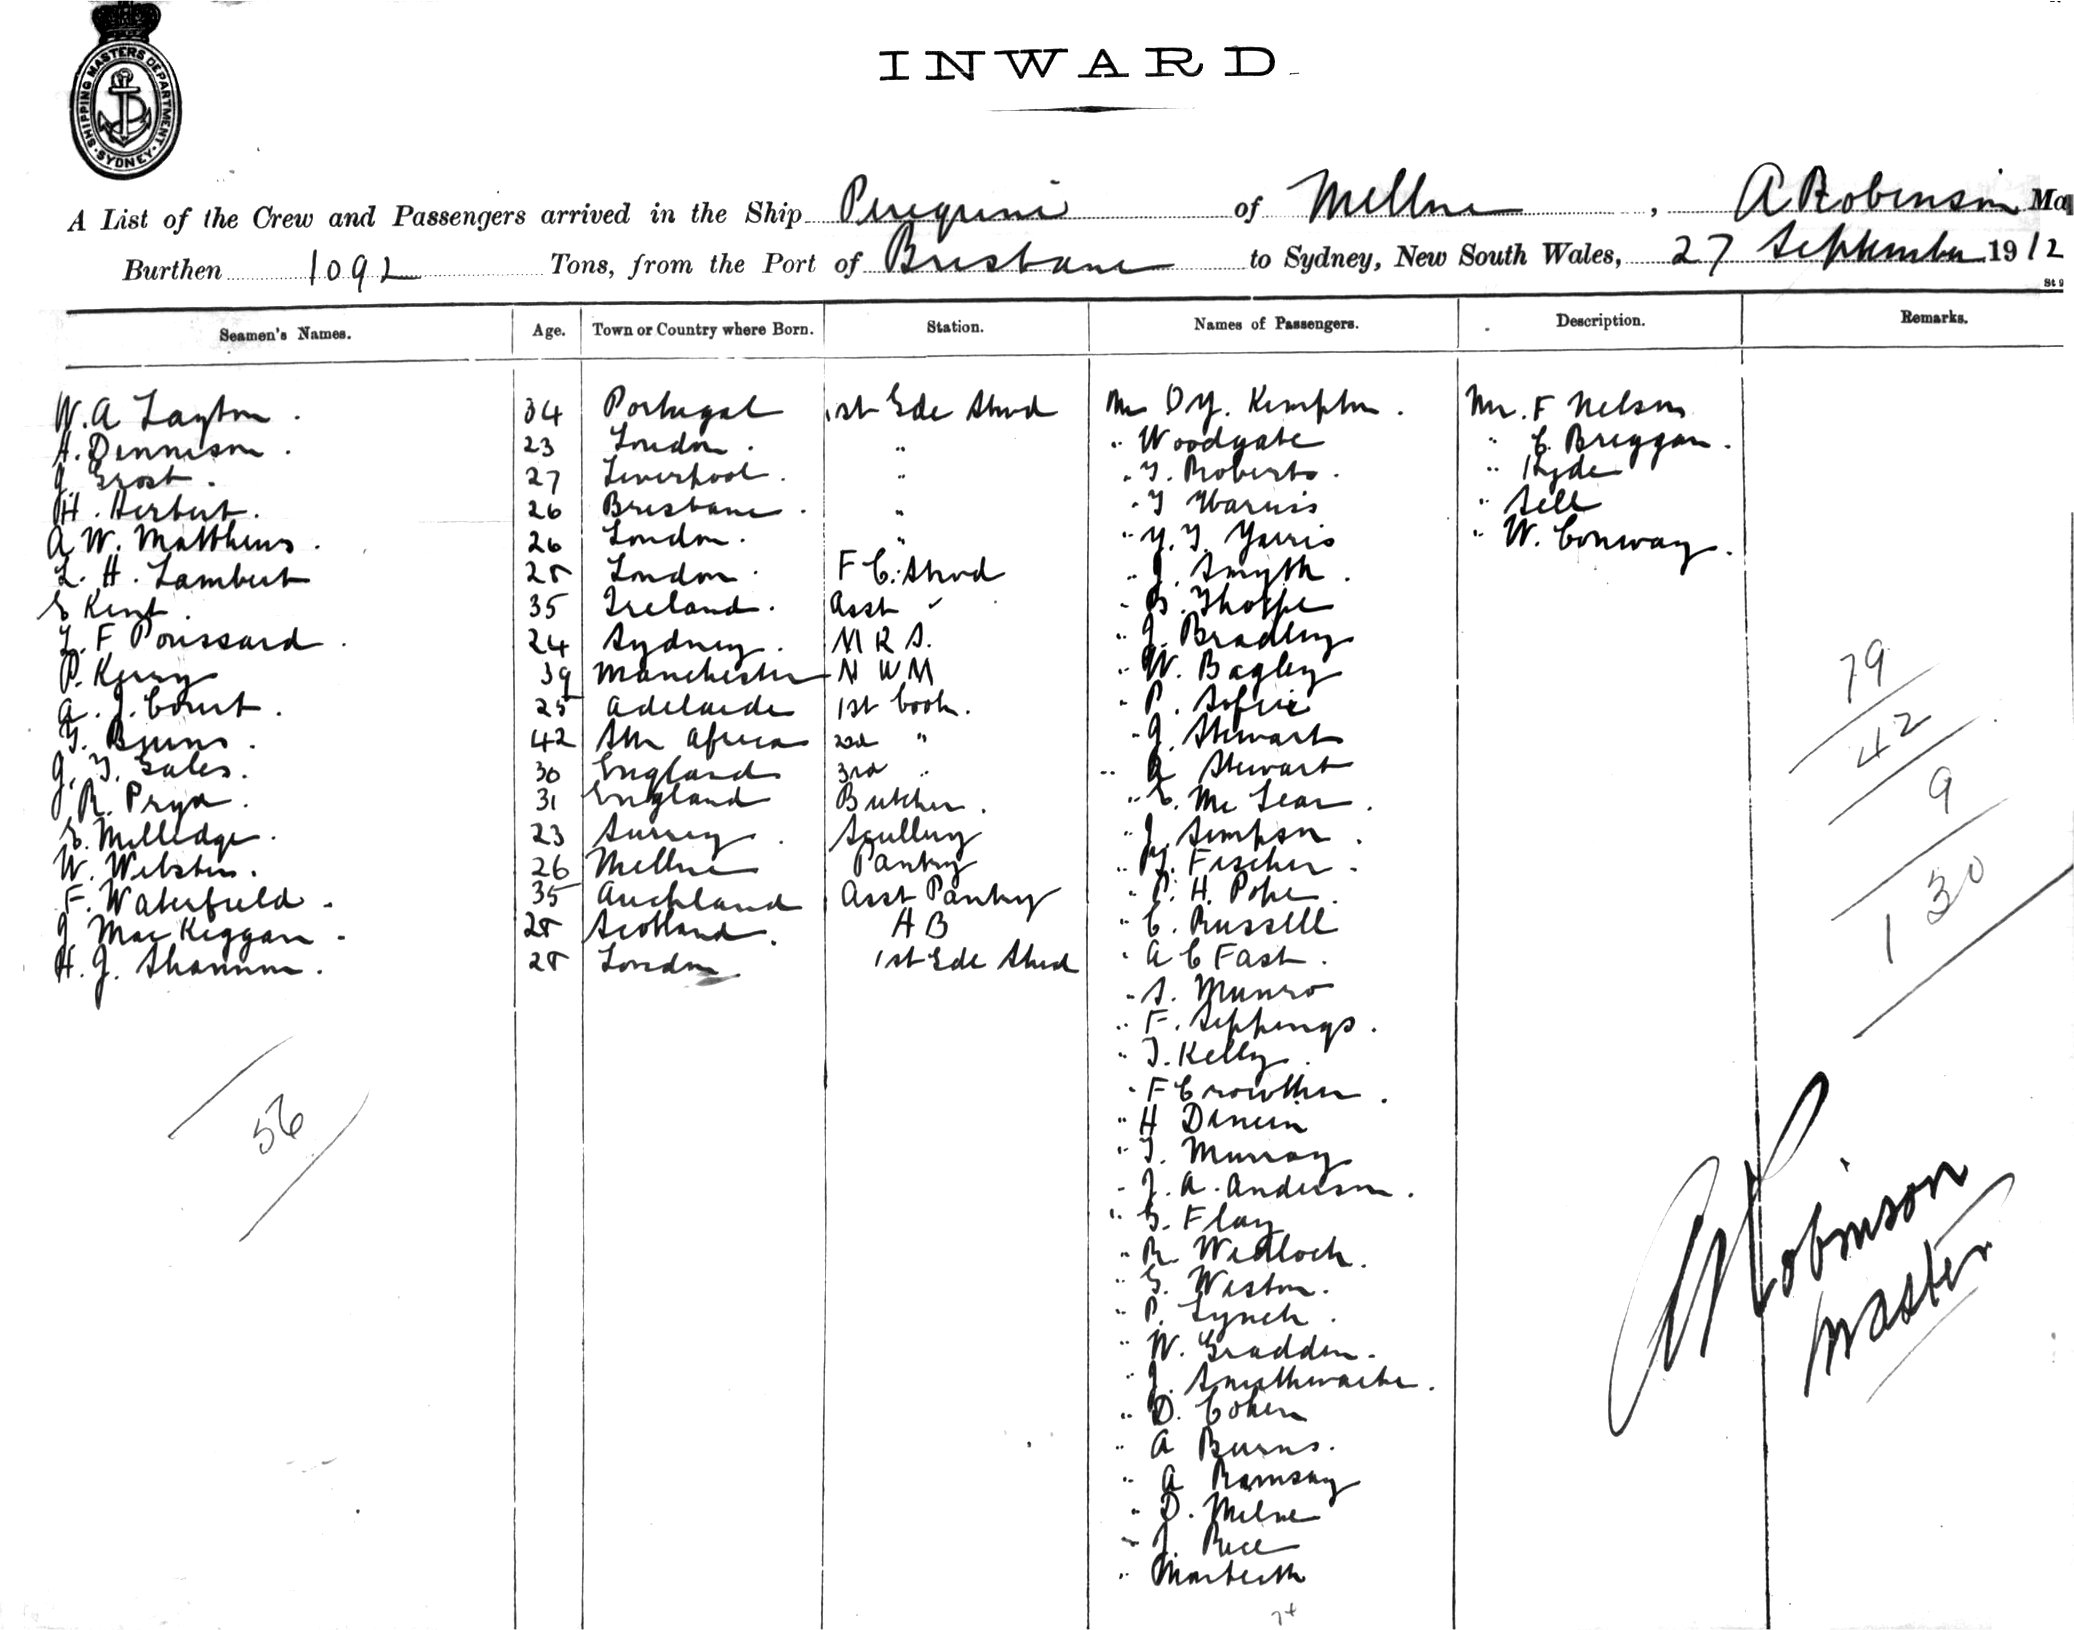 SHIPPING MASTERS DEPARTMENT. SYDNEY.
INWARD
A List of the Crew and Passengers arrived in the Ship Peregrine of Mellne, A Robinson Ma
Burthen 1092 Tons, from the Port of Brisbane to Sydney, New South Wales, 27 September 1912
Seamen's Names. Age. Town or Country where Born. Station. Names of Passengers. Description. Remarks.
W. A Layton 34 Portugal 1st Sde Stwd Mr Kempton Mr. F Nelson
H. Dennison 23 London " " Woodgate " C. Breggan
J. Frost 27 Liverpool " " T. Roberts " Hyde
H. Herbert 26 Brisbane " " " Sell
A W. Matthews 26 London " " " W. Conway
L. H. Lambert 28 London F C. Stwd " J. Smyth
E Kent 35 Ireland Asst " " G. Thorpe
L. F Poussard 24 Sydney M R S. " J. Bradley
P. Kerry 39 Manchester N W M " W. Bagley
A. J. Court 25 Adelaide 1st Cook " P.
G. Bruns 42 Sth Africa 2nd " " J. Stewart
J. T. Gales 30 England 3rd " " A Stewart
R. Pryor 31 England Butcher " E. Mc Lean
E. Milledge 23 Surrey Scullery " J. Simpson
W. Webster 26 Mellne Pantry " Fischer
F. Waterfield 35 Auckland Asst Pantry " P. H. Pope
J. Mac Keggan 28 Scotland A B " C. Russell
H. J. Shannon 28 London 1st Sde Stwd " A C Fast
" S. Munro
" F. Seppings
" T. Kelly
" F Crowther
" H
" T. Murray
" J. A. Anderson
" G. Flay
" R. Wedlock
" G. Weston
" P. Lynch
" W. Gradden
" J. Smithwaite
" D. Cohen
" A Burns
" A Ramsay
" D. Milne
" J. Rice
" Monteith
56
79
42
9
130
A Robinson
Master